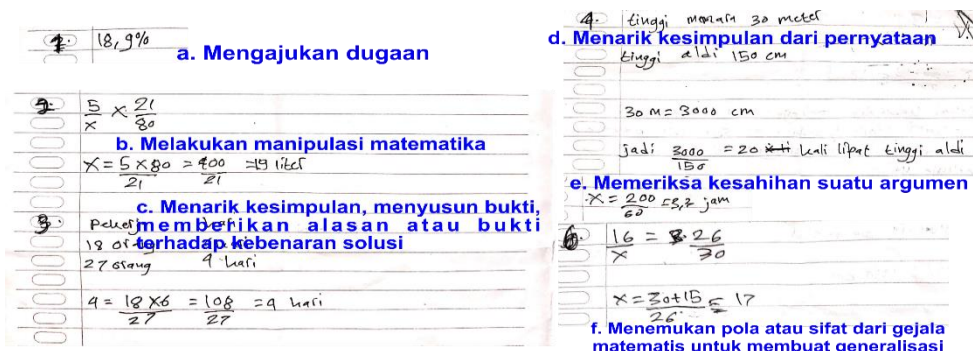 1. 18,9%
a. Mengajukan dugaan
2. 5/x × 21/80
b. Melakukan manipulasi matematika
x = 5 × 80 / 21 = 400 / 21 = 19 liter
c. Menarik kesimpulan, menyusun bukti,
memberikan alasan atau bukti
terhadap kebenaran solusi
3.
18
27 orang 4 hari
4 = 18 × 6 / 27 = 108 / 27 = 4 hari
4. tinggi menara 30 meter
d. Menarik kesimpulan dari pernyataan
tinggi aldi 150 cm
30 m = 3000 cm
jadi 3000 / 150 = 20 kali lipat tinggi aldi
e. Memeriksa kesahihan suatu argumen
x = 200 / 60 = 3,2 jam
6. 16 / x = 26 / 30
x = 30 + 15 / 26 = 17
f. Menemukan pola atau sifat dari gejala
matematis untuk membuat generalisasi